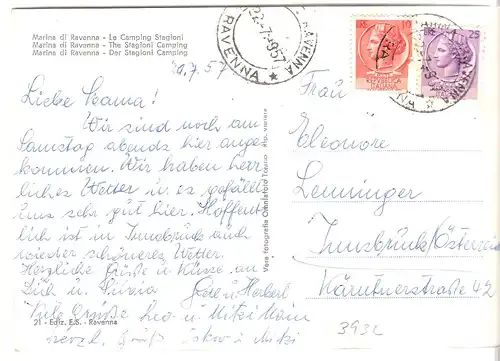 Marina di Ravenna - Le Camping Stagioni
Marina di Ravenna - The Stagioni Camping
Marina di Ravenna - Der Stagioni Camping
RAVENNA
22-7-1957
RAVENNA
10
25
REPUBBLICA
ITALIANA
.7.57
Liebe Mama!
Wir sind noch am
Samstag abends hier ange
kommen. Wir haben herr
liches Wetter u. es gefällt
uns sehr gut hier. Hoffent
lich ist in Innsbruck auch
wieder schöneres Wetter.
Herzliche Grüße u Küsse an
Dich u. Gerd u Herbert
Viele Grüße Leo u Mitzi
herzl. Grüße Oskar u Mitzi
Frau
Eleonore
Lenninger
Innsbruck/Österreich
Kärntnerstraße 42
3932
Vera fotografia Omniafoto Torino Rip. vietata
21 - Ediz. E.S. - Ravenna